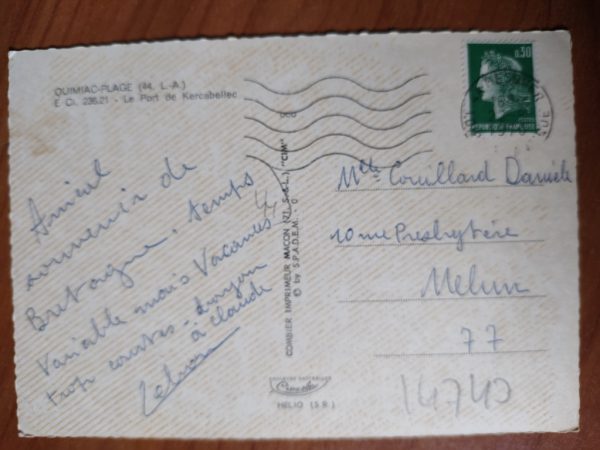 QUIMIAC-PLAGE (44. L.-A.)
E Ci. 236.21 - Le Port de Kercabellec
Amical
souvenir de
Bretagne. temps
Variable mais Vacances
trop courtes -
à Claude
COMBIER IMPRIMEUR MACON (71. S.-&-L.) "CIM"
© by S.P.A.D.E.M.
HELIO (S.R.)
0,30
POSTES
REPUBLIQUE FRANÇAISE
Mlle Couillard Danièle
10 rue Presbytère
Melun
77
14740